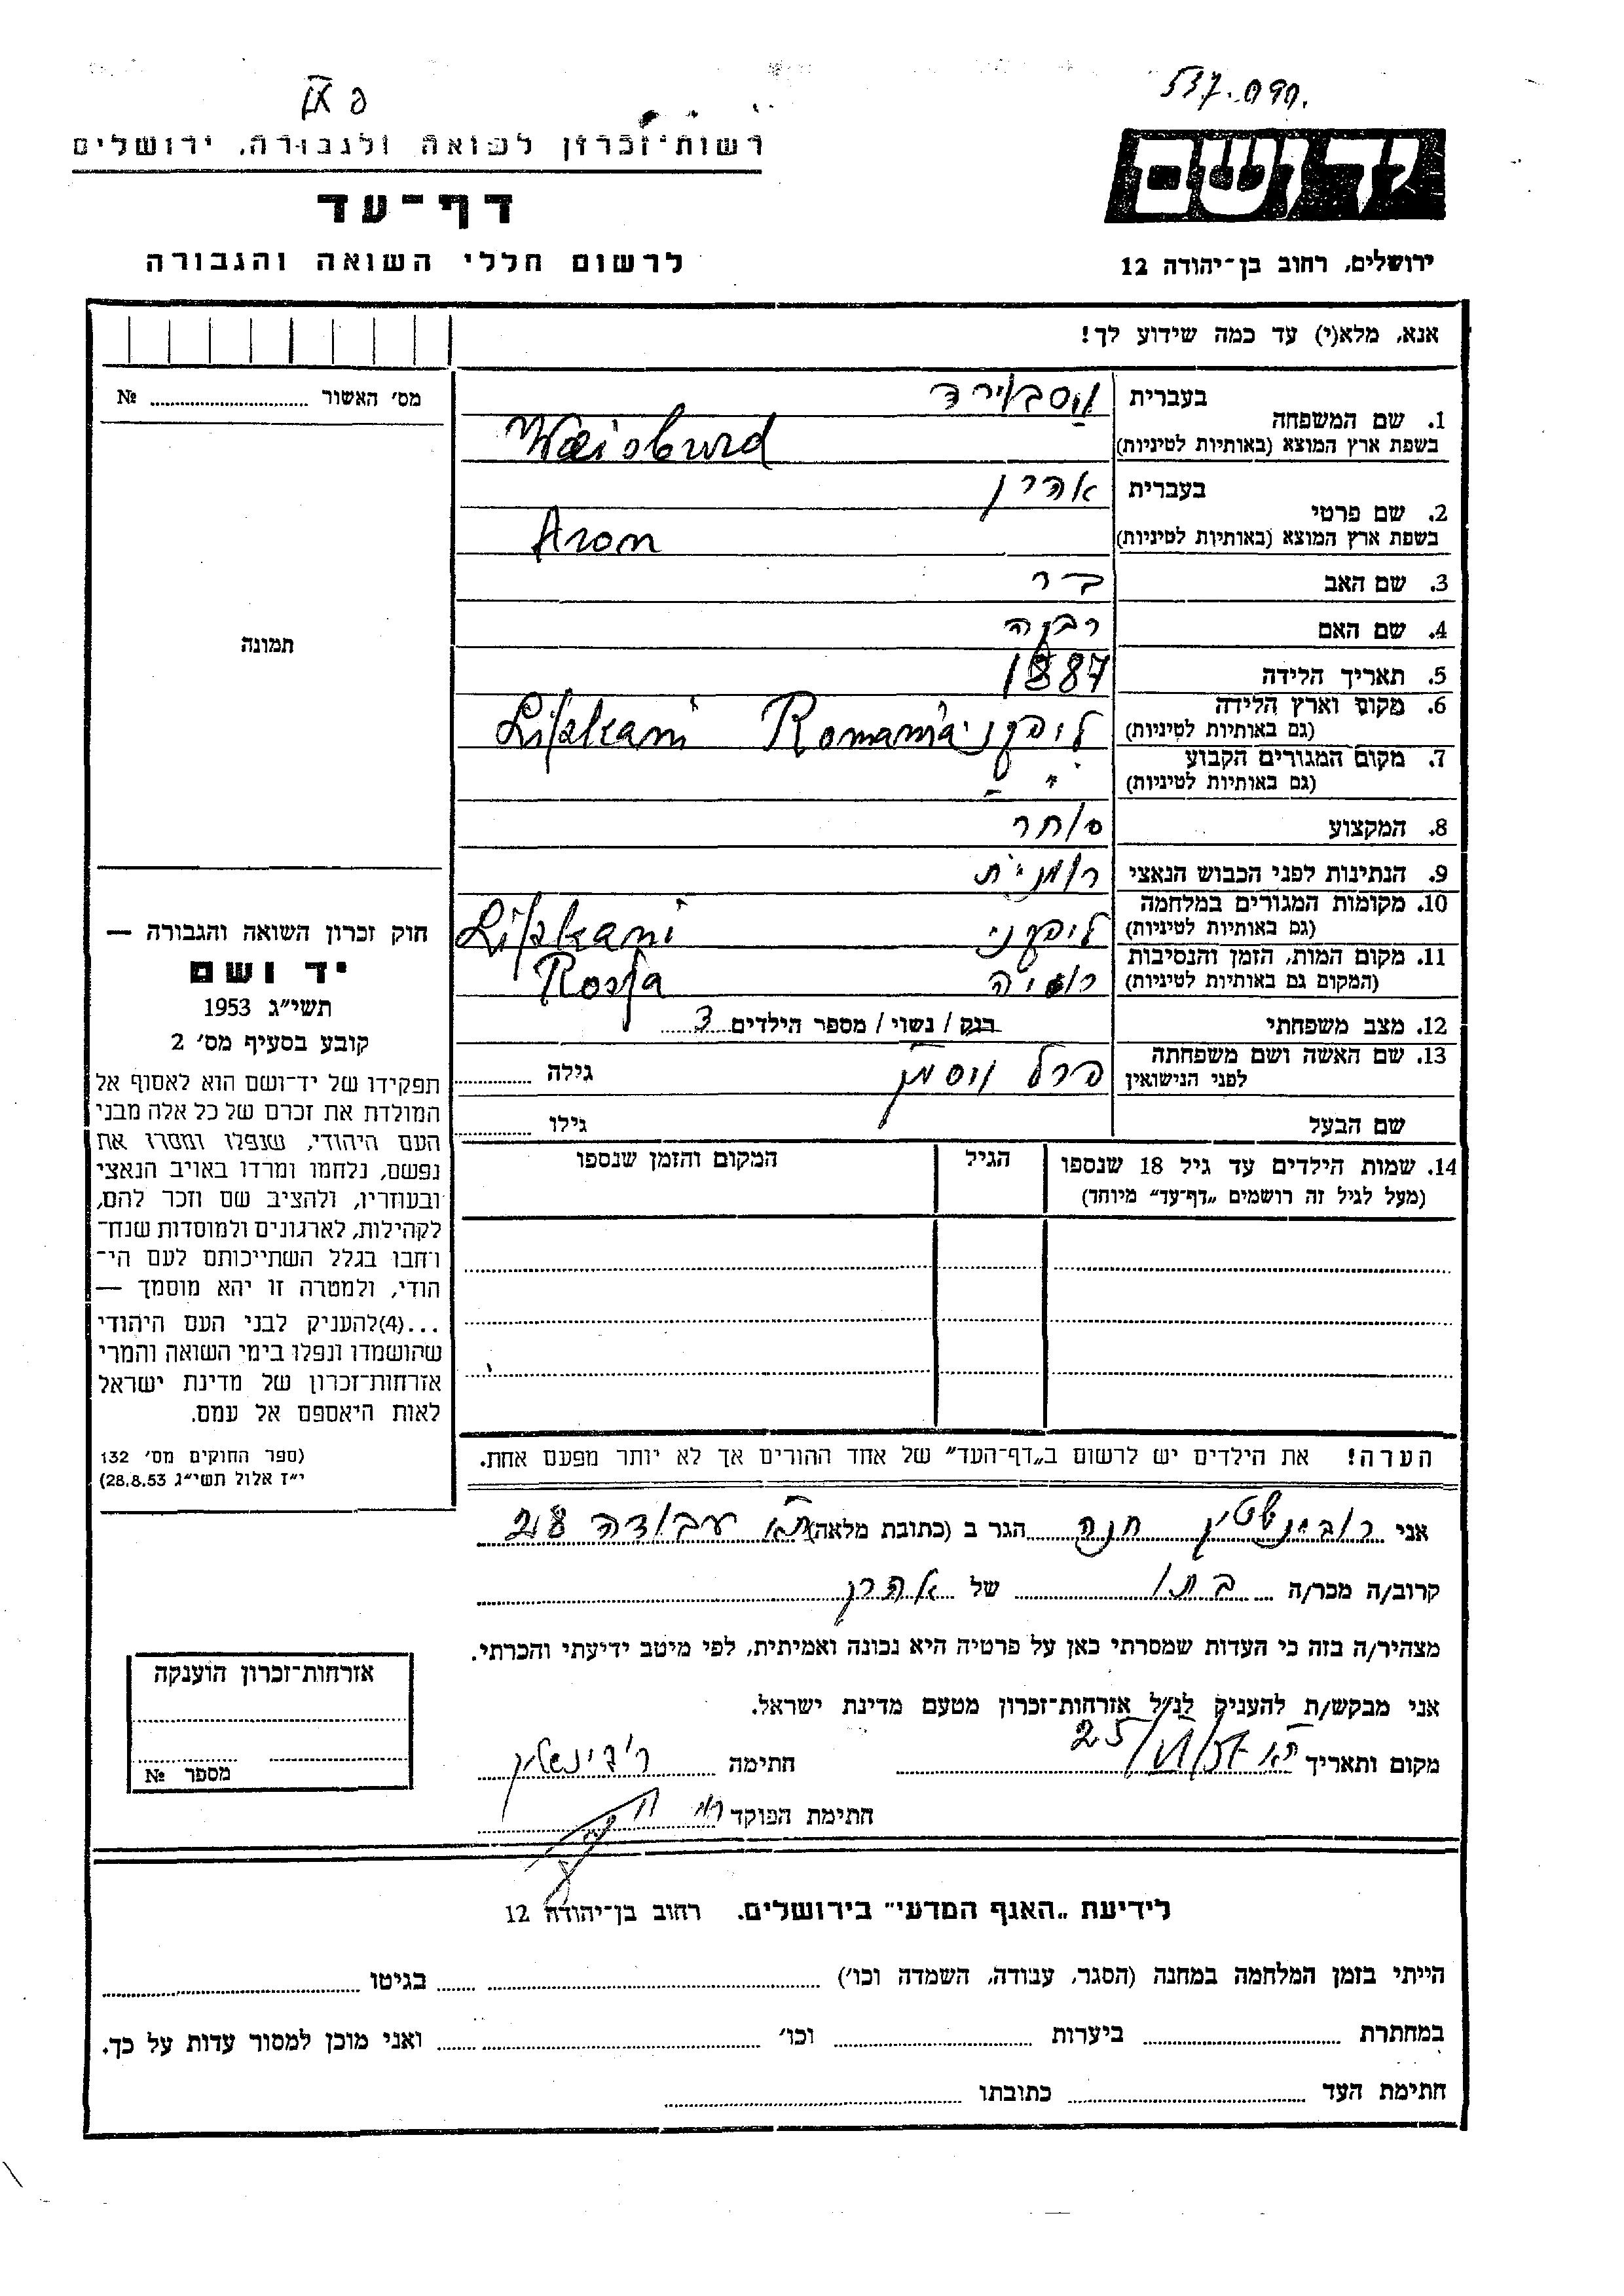 537.090.
רשות־זכרון לשואה ולגבורה, ירושלים
יד ושם
דף־עד
לרשום חללי השואה והגבורה
ירושלים, רחוב בן־יהודה 12
אנא, מלא(י) עד כמה שידוע לך!
מס׳ האשור № ........
תמונה
1. שם המשפחה
בעברית
בשפת ארץ המוצא (באותיות לטיניות) Waisburd
2. שם פרטי
בעברית אהרן
בשפת ארץ המוצא (באותיות לטיניות) Aron
3. שם האב בר
4. שם האם
5. תאריך הלידה 1887
6. מקום וארץ הלידה
(גם באותיות לטיניות) ליפקני Romania Lipkani
7. מקום המגורים הקבוע
(גם באותיות לטיניות) " "
8. המקצוע סוחר
9. הנתינות לפני הכבוש הנאצי רומנית
10. מקומות המגורים במלחמה
(גם באותיות לטיניות) ליפקני Lipkani
11. מקום המות, הזמן והנסיבות
(המקום גם באותיות לטיניות) רוסיה
12. מצב משפחתי רווק / נשוי / מספר הילדים 3
13. שם האשה ושם משפחתה
לפני הנישואין פרל וסמן גילה
שם הבעל גילו
14. שמות הילדים עד גיל 18 שנספו
(מעל לגיל זה רושמים „דף־עד״ מיוחד)
הגיל
המקום והזמן שנספו
חוק זכרון השואה והגבורה —
יד ושם
תשי״ג 1953
קובע בסעיף מס׳ 2
תפקידו של יד־ושם הוא לאסוף אל
המולדת את זכרם של כל אלה מבני
העם היהודי, שנפלו ומסרו את
נפשם, נלחמו ומרדו באויב הנאצי
ובעוזריו, ולהציב שם וזכר להם,
לקהילות, לארגונים ולמוסדות שנח־
רחבו בגלל השתייכותם לעם הי־
הודי, ולמטרה זו יהא מוסמך —
...(4)להעניק לבני העם היהודי
שהושמדו ונפלו בימי השואה והמרי
אזרחות־זכרון של מדינת ישראל
לאות היאספם אל עמם.
(ספר החוקים מס׳ 132
י״ז אלול תשי״ג 28.8.53)
הערה! את הילדים יש לרשום ב„דף־העד״ של אחד ההורים אך לא יותר מפעם אחת.
אני רובינשטין חנה הגר ב (כתובת מלאה) ת״א עבודה 28
קרוב/ה מכר/ה בתו של אהרן
מצהיר/ה בזה כי העדות שמסרתי כאן על פרטיה היא נכונה ואמיתית, לפי מיטב ידיעתי והכרתי.
אני מבקש/ת להעניק לנ״ל אזרחות־זכרון מטעם מדינת ישראל.
מקום ותאריך ת״א חתימה רובינשטין
חתימת הפוקד
אזרחות־זכרון הוענקה
מספר №
לידיעת „האגף המדעי״ בירושלים. רחוב בן־יהודה 12
הייתי בזמן המלחמה במחנה (הסגר, עבודה, השמדה וכו׳) ........ בגיטו ........
במחתרת ........ ביערות ........ וכו׳ ........ ואני מוכן למסור עדות על כך.
חתימת העד ........ כתובתו ........